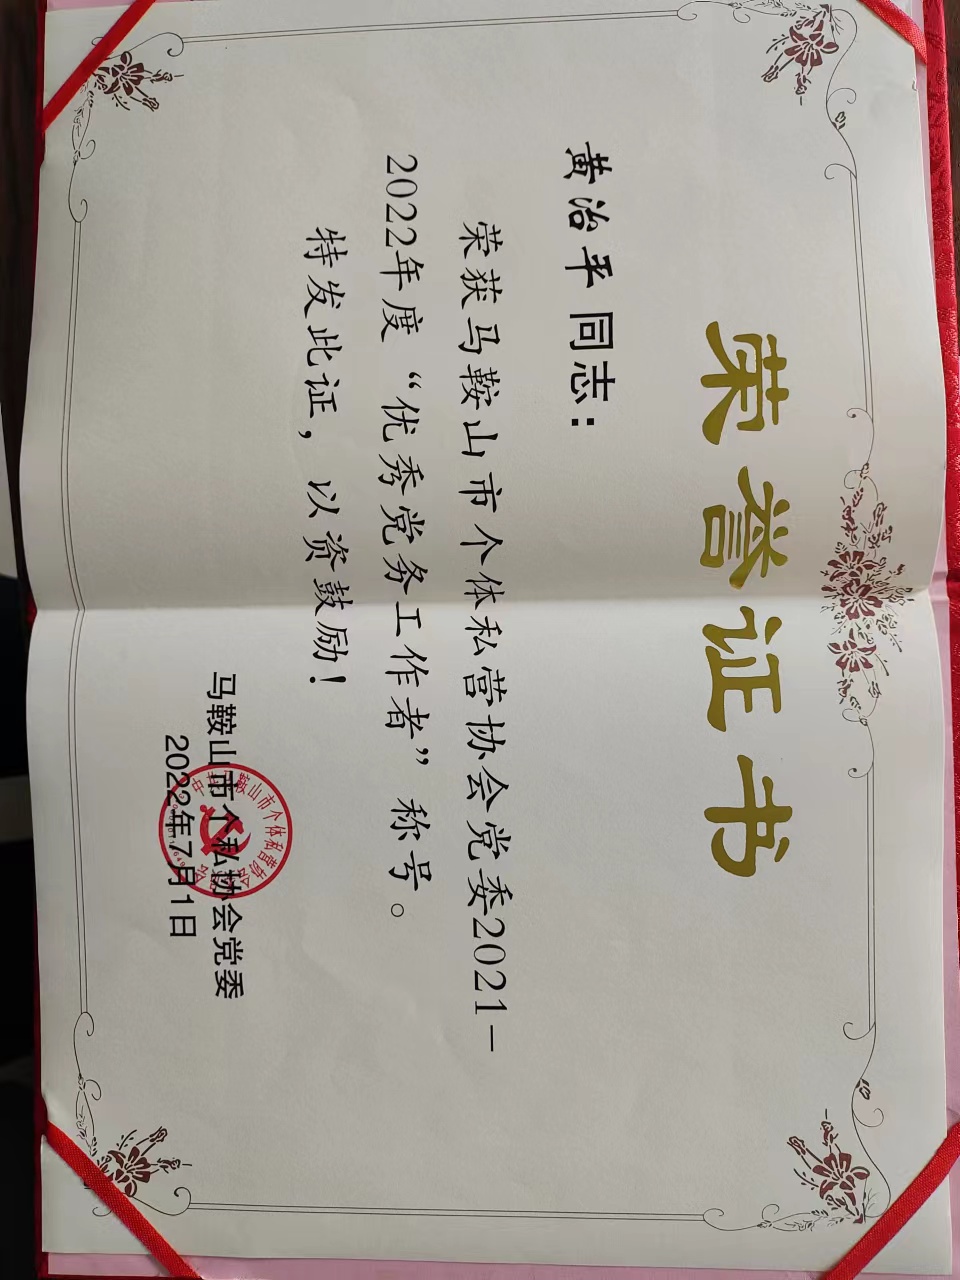 荣誉证书
黄治平 同志：
荣获马鞍山市个体私营协会党委2021－
2022年度“优秀党务工作者” 称号。
特发此证，以资鼓励！
马鞍山市个私协会党委
2022年7月1日